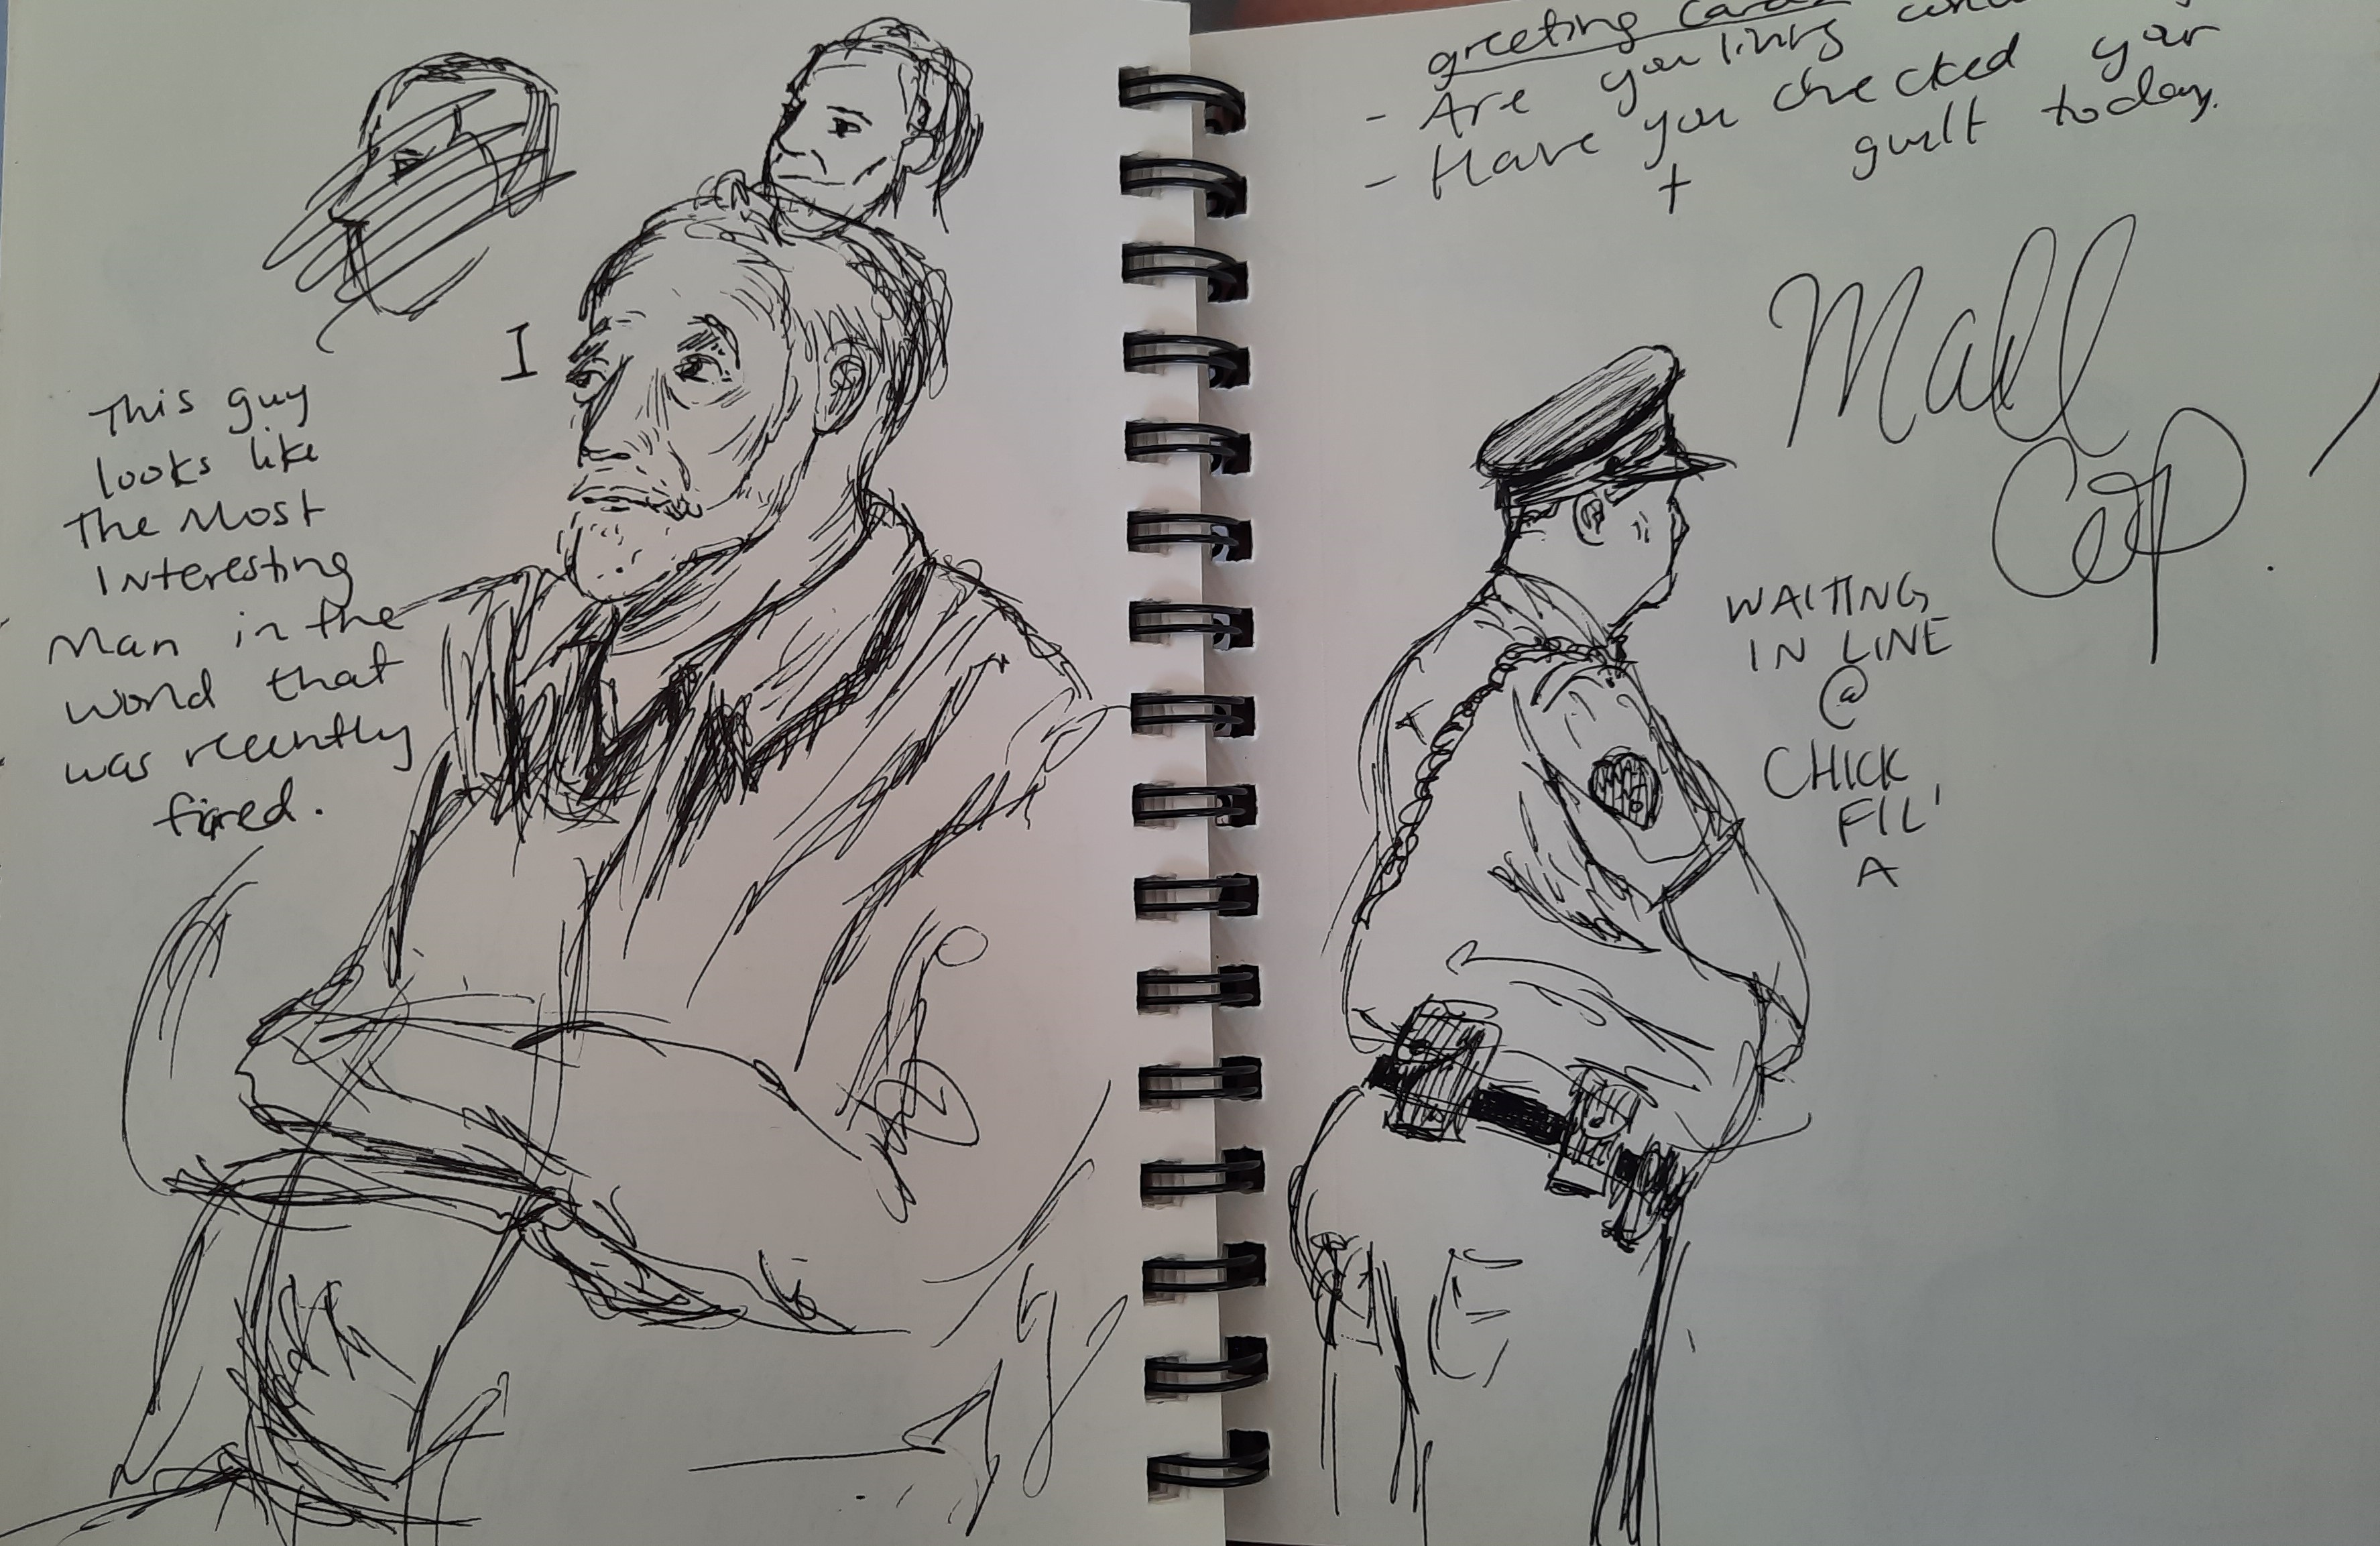 This guy
looks like
The Most
Interesting
Man in the
world that
was recently
fired.
I
greeting cards
- Are you living
- Have you checked your
+ guilt today.
Mall
Cop
WAITING
IN LINE
@
CHICK
FIL'
A